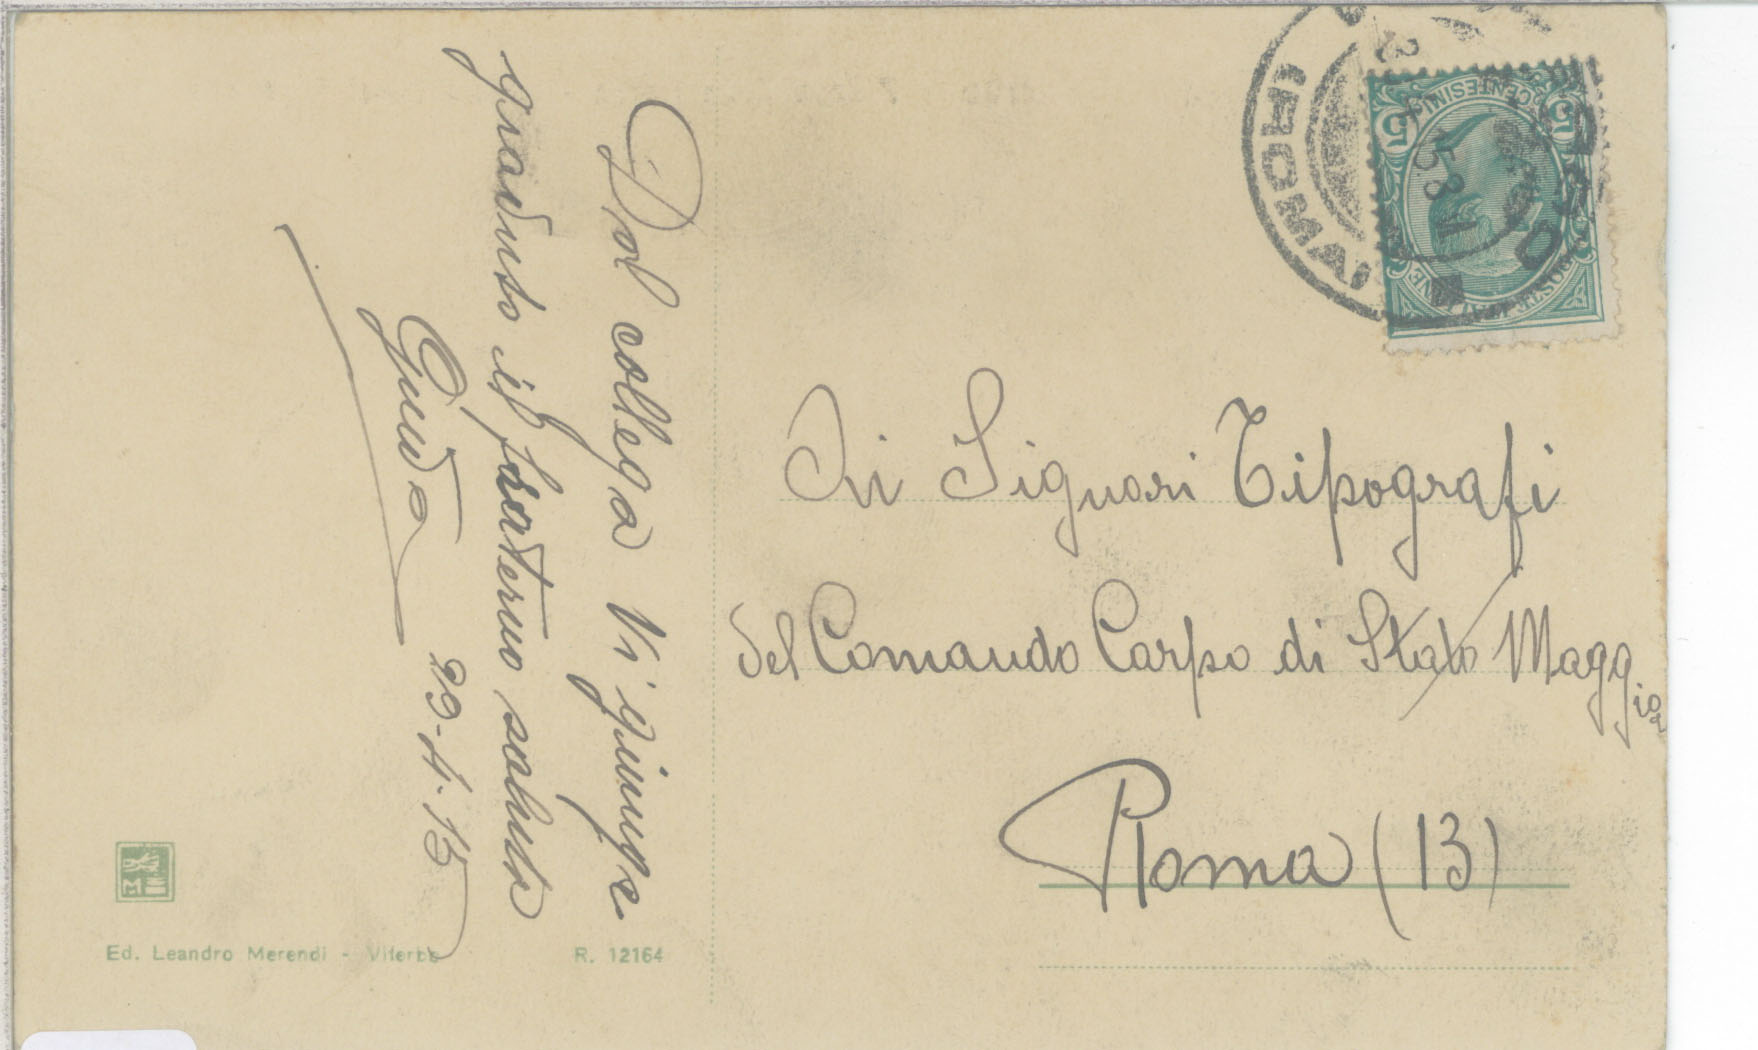 Dal collega Vi giunge
gradito il fraterno saluto
Guido
29-4-15
Ai Signori Tipografi
del Comando Corpo di Stato Maggior
Roma (13)
Ed. Leandro Merendi - Viterbo
R. 12164
5 CENTESIMI 5
POSTE